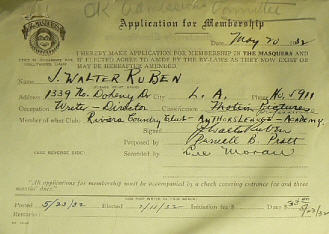 OK Admissions Committee
Application for Membership
Date May 20 1932
I HEREBY MAKE APPLICATION FOR MEMBERSHIP IN THE MASQUERS AND
IF ELECTED AGREE TO ABIDE BY THE BY-LAWS AS THEY NOW EXIST OR
MAY BE HEREAFTER AMENDED.
Name J. Walter Ruben
Address 1339 No. Doheny Dr City L. A. Phone
Occupation Writer - Director Classification Motion Pictures
Member of what Clubs: Riviera Country Club - Authors League - Academy
Signed J Walter Ruben
Proposed by
Seconded by Lee Moran
(SEE REVERSE SIDE)
"All applications for membership must be accompanied by a check covering entrance fee and three months' dues."
Posted 5/23/32 Elected 7/11/32 Initiation fee $
Remarks: